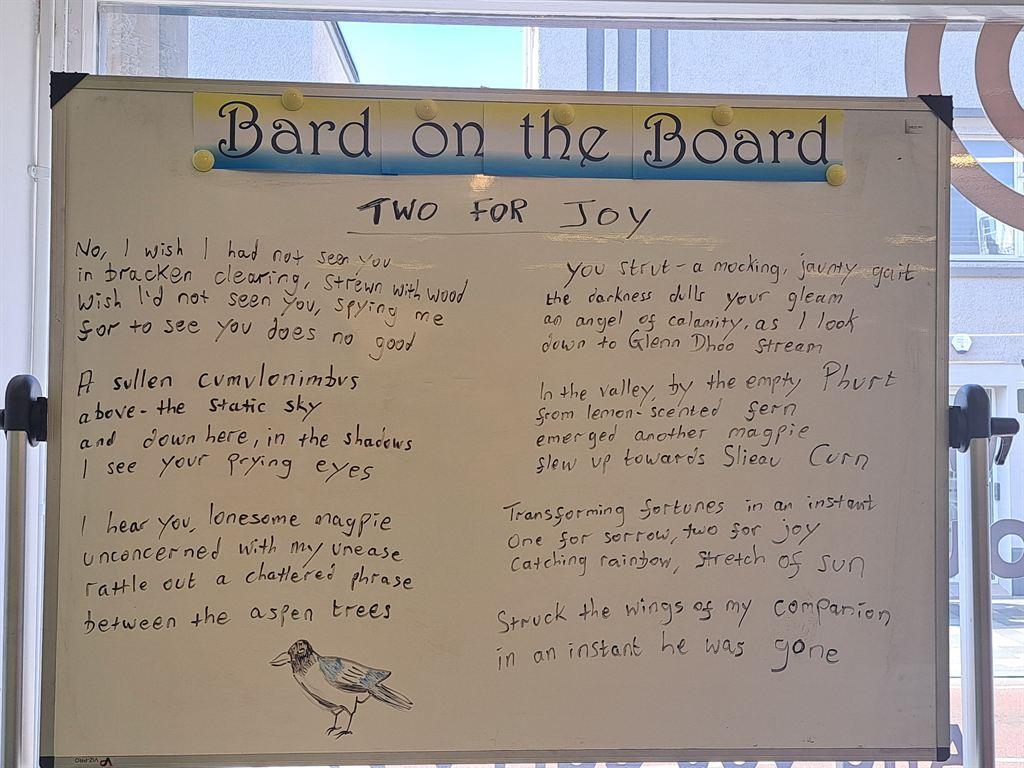 Bard on the Board
TWO FOR JOY
No, I wish I had not seen you
in bracken clearing, strewn with wood
Wish I'd not seen you, spying me
for to see you does no good
A sullen cumulonimbus
above - the static sky
and down here, in the shadows
I see your prying eyes
I hear you, lonesome magpie
unconcerned with my unease
rattle out a chattered phrase
between the aspen trees
you strut - a mocking, jaunty gait
the darkness dulls your gleam
an angel of calamity, as I look
down to Glenn Dhoo stream
In the valley, by the empty Phurt
from lemon-scented fern
emerged another magpie
flew up towards Slieau Curn
Transforming fortunes in an instant
one for sorrow, two for joy
Catching rainbow, stretch of sun
Struck the wings of my companion
in an instant he was gone
VIZ-PRO